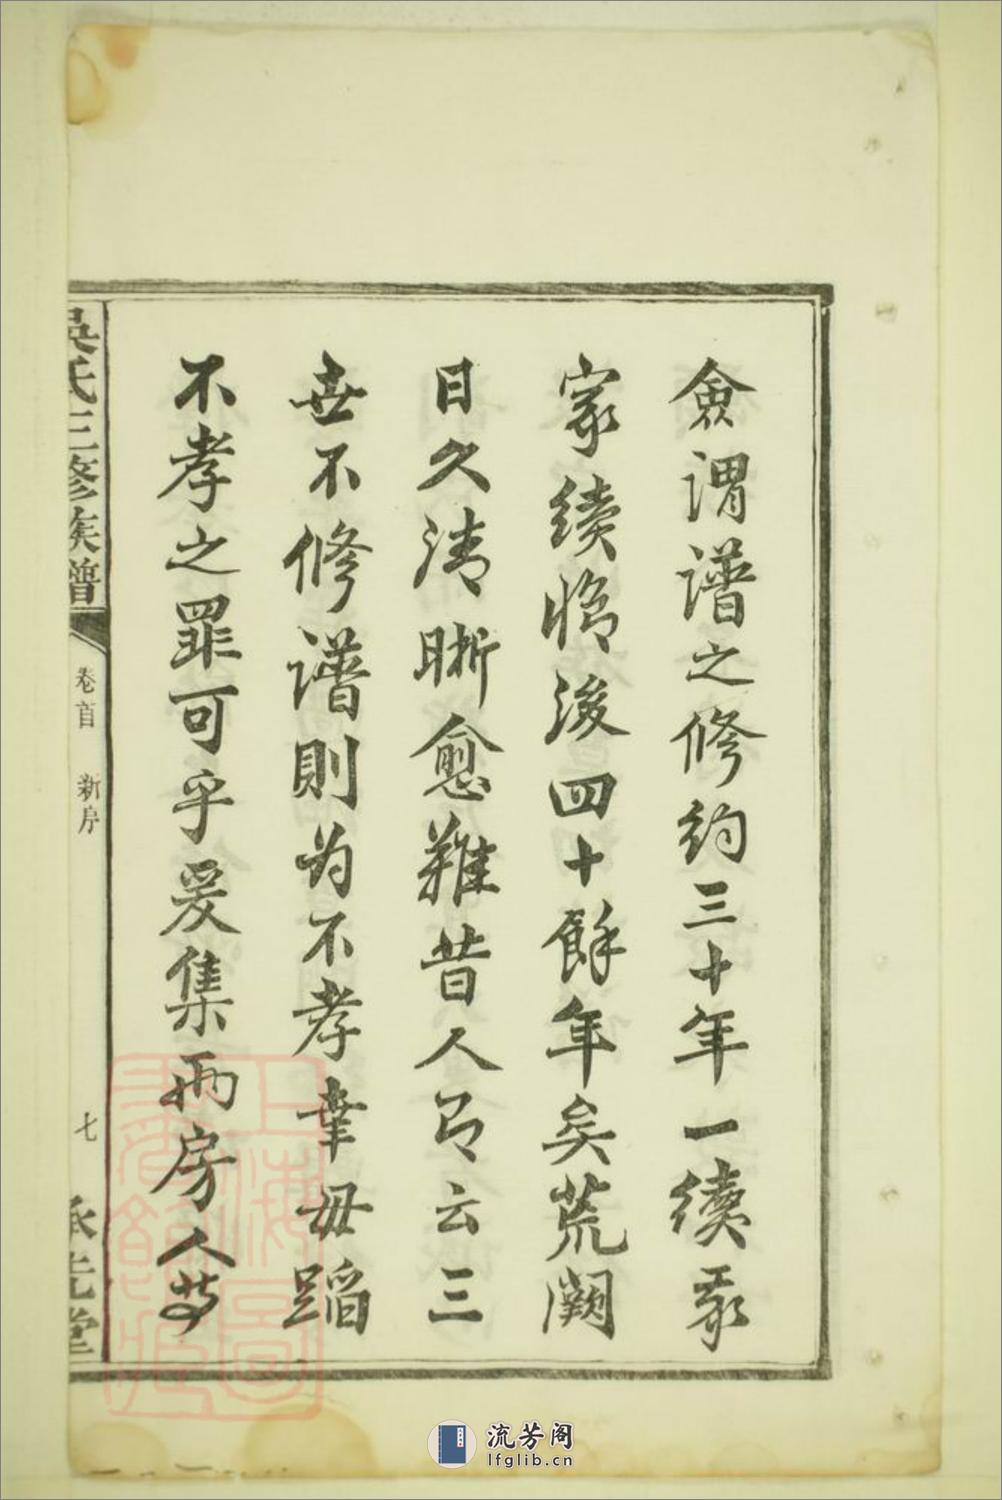 僉謂譜之修約三十年一續我
家續脩後四十餘年矣荒闕
日久清晰愈難昔人有云三
世不修譜則为不孝幸毋蹈
不孝之罪可乎爰集兩房人等
吳氏三修族譜
卷首 新序
七
承先堂
上海圖書館藏
流芳阁
lfglib.cn